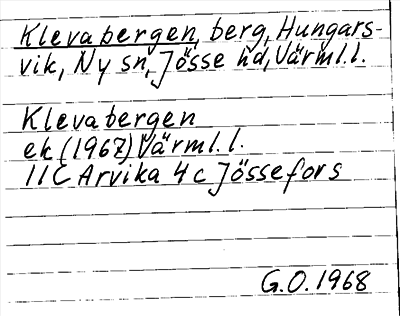 Klevabergen, berg, Hungars-
vik, Ny sn, Jösse hd, Värml.l.
Klevabergen
ek (1967) Värml.l.
11C Arvika 4c Jössefors
G.O. 1968